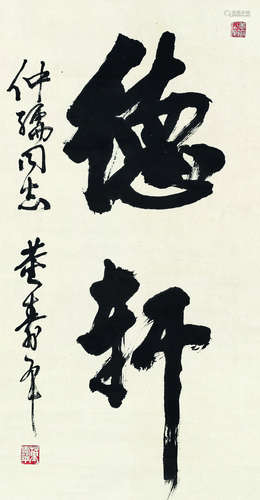 德轩
仲孺同志
董寿平